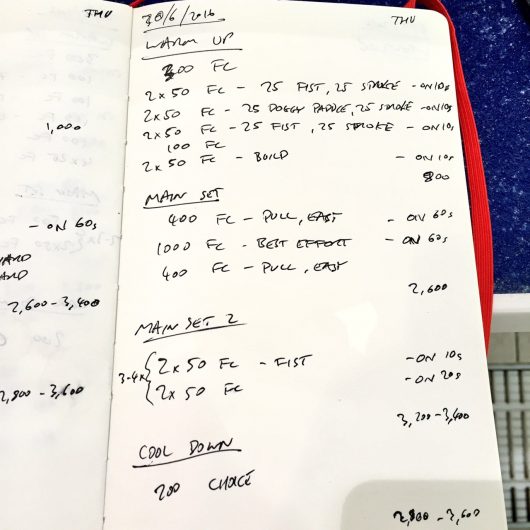 THU
1,000
- ON 60s
WARD
WARD
2,600 - 3,400
2,800 - 3,600
30/6/2016 THU
WARM UP
300 FC
2 x 50 FC - 25 FIST, 25 STROKE - ON 10s
2 x 50 FC - 25 DOGGY PADDLE, 25 STROKE - ON 10s
2 x 50 FC - 25 FIST, 25 STROKE - ON 10s
100 FC
2 x 50 FC - BUILD - ON 10s
800
MAIN SET
400 FC - PULL, EASY - ON 60s
1000 FC - BEST EFFORT - ON 60s
400 FC - PULL, EASY
2,600
MAIN SET 2
3-4x { 2 x 50 FC - FIST - ON 10s
2 x 50 FC - ON 20s
3,200 - 3,400
COOL DOWN
200 CHOICE
2,800 - 3,600